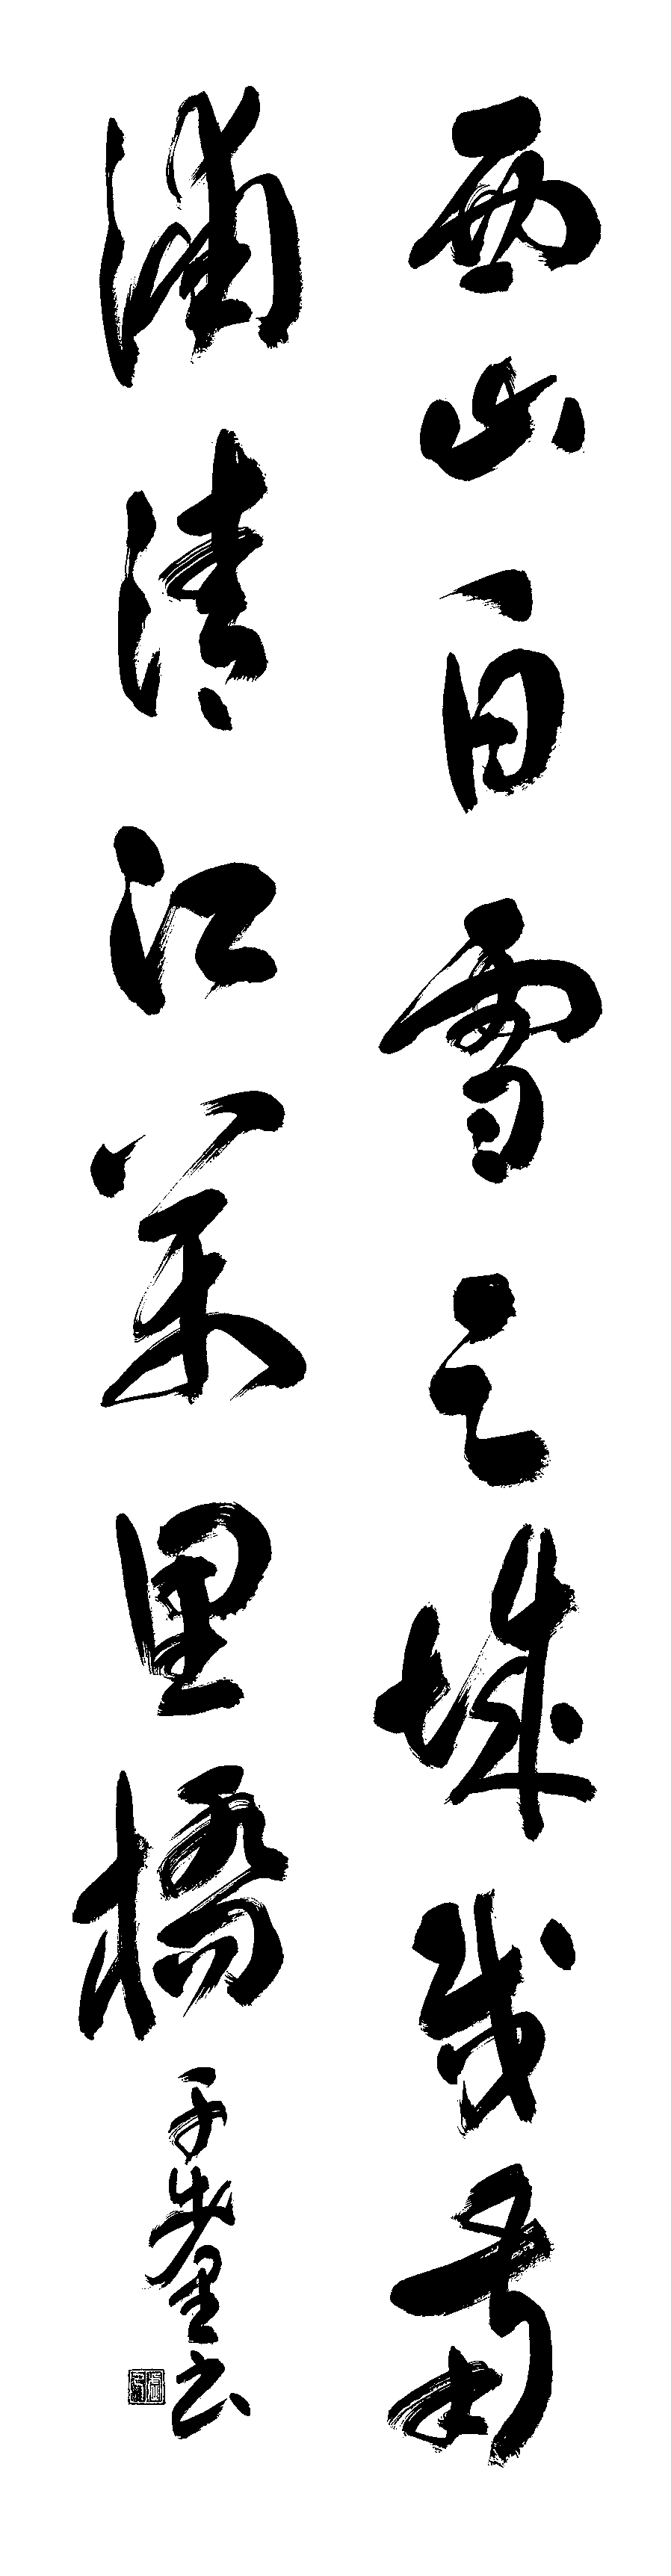 西山白雪三城戍南
浦清江萬里橋
書